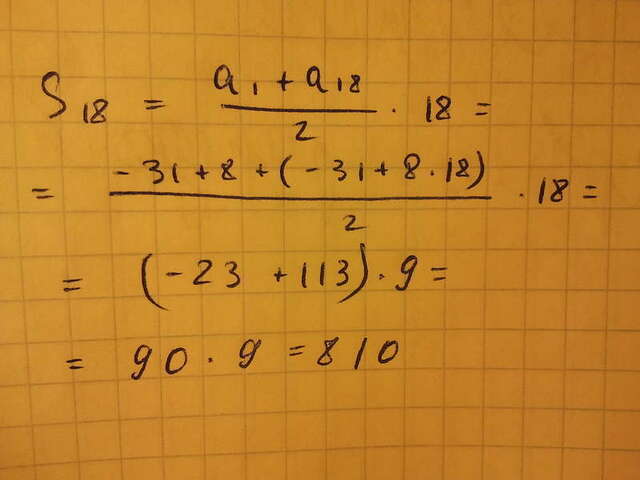 S₁₈ = (a₁ + a₁₈)/2 · 18 =
= (-31 + 8 + (-31 + 8 · 18))/2 · 18 =
= (-23 + 113) · 9 =
= 90 · 9 = 810